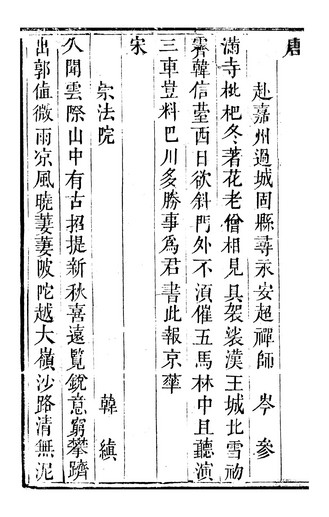 唐
赴嘉州過城固縣尋永安超禪師 岑參
滿寺枇杷冬著花老僧相見具袈裟漢王城北雪初
霽韓信臺西日欲斜門外不湏催五馬林中且聽演
三車豈料巴川多勝事爲君書此報京華
宋
宗法院 韓縝
久聞雲際山中有古招提新秋喜遠覧銳意窮攀躋
出郭值微雨凉風曉萋萋陂陀越大嶺沙路清無泥